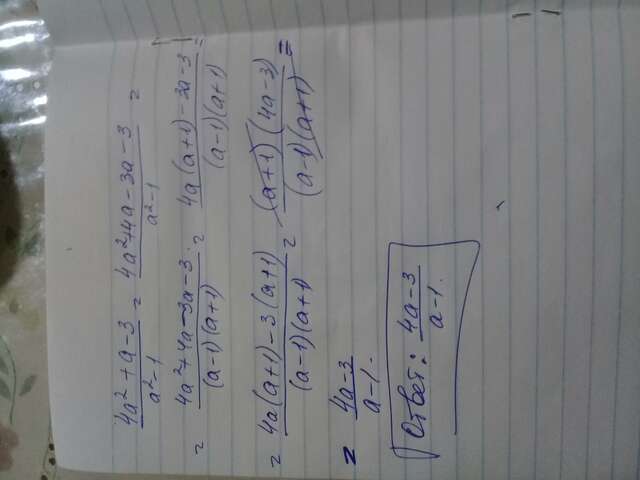 4a²+a-3/a²-1 = 4a²+4a-3a-3/a²-1 =
= 4a²+4a-3a-3/(a-1)(a+1) = 4a(a+1)-3a-3/(a-1)(a+1) =
= 4a(a+1)-3(a+1)/(a-1)(a+1) = (a+1)(4a-3)/(a-1)(a+1) =
= 4a-3/a-1.
Ответ: 4a-3/a-1.